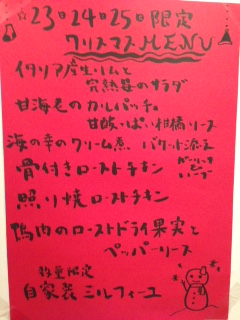 ☆23・24・25日限定
クリスマスMENU
イタリア産生ハムと
完熟苺のサラダ
甘海老のカルパッチョ
甘酸っぱい柑橘ソース
海の幸のクリーム煮 バケット添え
骨付きローストチキン
照り焼ローストチキン
鴨肉のロースト ドライ果実と
ペッパーソース
数量限定
自家製ミルフィーユ